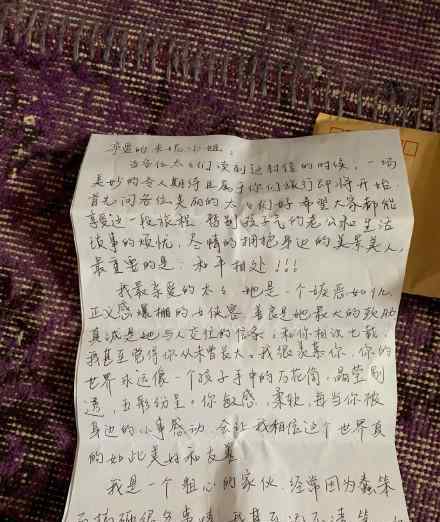 李思的朱悦小姐，
当各位太太们读到这封信的时候，一场
美妙的令人期待且属于你们旅行即将开始
首先问各位美丽的太太们好 希望大家都能
享受这一段旅程 暂别孩子气的老公和生活
琐事的烦忧，尽情的拥抱身边的美景美人，
最重要的是：和平相处！！！
我最亲爱的太太 她是一个嫉恶如仇
正义感爆棚的女侠客，善良是她最大的软肋
真诚是她与人交往的信条，和你相识七载，
我甚至觉得你从未曾长大。我很羡慕你，你的
世界永远像一个孩子手中的万花筒，晶莹剔
透，五彩纷呈。你敏感，柔软，每当你被
身边的小事感动，会让我相信这个世界真
的如此美好和友善
我是一个粗心的家伙，经常因为蠢笨